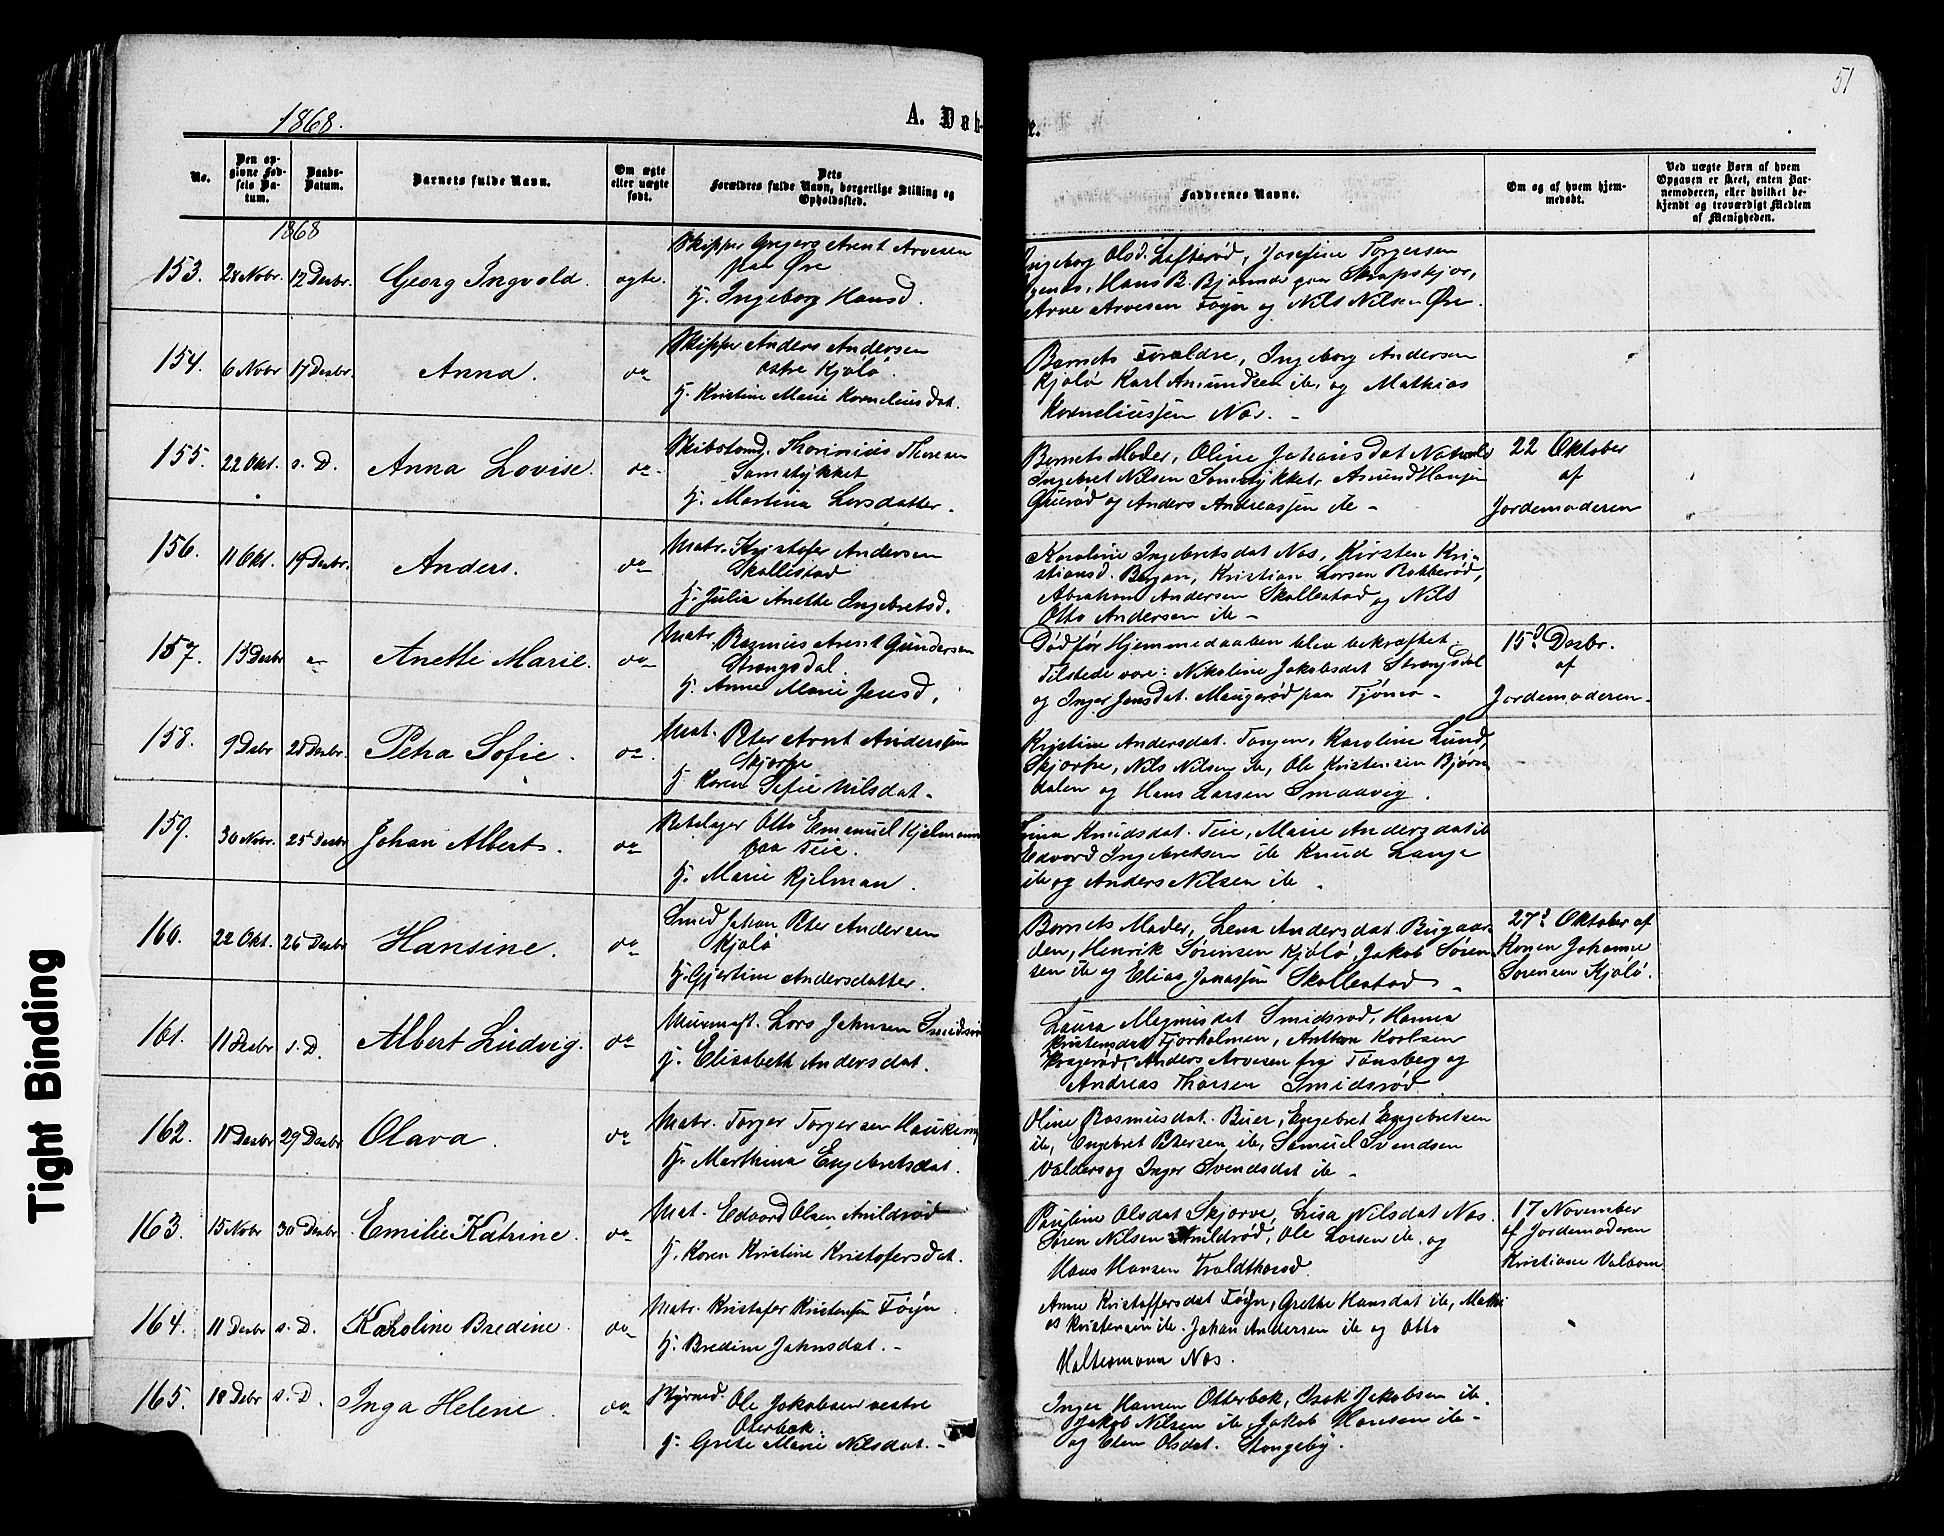 51
1868.
A. Døb-
e.
No.
Den op-
givne Fød-
sels Da-
tum.
Daabs-
Datum.
Barnets fulde Navn.
Om ægte
eller uægte
født.
Dets
Forældres fulde Navn, borgerlige Stilling og
Opholdssted.
Faddernes Navne.
Om og af hvem hjem-
medøbt.
Ved uægte Børn af hvem
Opgaven er skeet, enten Bar-
nemoderen, eller hvilket be-
kjendt og troværdigt Medlem
af Menigheden.
1868
153. 28 Nobr. 12 Desbr. Georg Ingvold ægte.
Skipper Gregers Arent Arvesen
paa Øre
H. Ingeborg Hansd.
Ingeborg Olsd. Lofterød, Josefine Torgersen
Hans B. Bjønnes paa
Arne Arvesen Føyn og Nils Nilsen Øre.
154. 6 Nobr 17 Desbr. Anna. do
Skipper Anders Andersen
østre Kjølø.
H. Kristine Marie Korneliusdat.
Barnets Forældre, Ingeborg Andersen
Kjølø Karl Amundsen ib, og Mathias
Korneliussen Nøs. -
155. 22 Okt. s. D. Anna Lovise. do
Skibstømd. Thorinius Thoresen
Lamstykket
H. Martina Larsdatter.
Barnets Moder, Oline Johansdat
Ingebret Nilsen Lamstykket, Amund Hansen
og Anders Andreassen ib -
22 Oktober
af
Jordemoderen
156. 11 Okt. 19 Desbr. Anders. do
Matr. Kristofer Andersen
Skallestad
H. Julia Anette Ingebretsd.
Karoline Ingebretsdat Nøs, Kirsten Kri-
stiansd. Bergan, Kristian Larsen Rakkerød,
Abraham Andersen Skallestad og Nils
Otto Andersen ib -
157. 15 Desbr - Anette Marie. do
Matr. Rasmus Arent Gundersen
Strengsdal.
H. Anne Marie Jensd.
Død før Hjemmedaaben blev bekræftet.
Tilstede vare: Nikoline Jakobsdat Strengsdal
og Inger Jensdat. Maugerød paa Tjømø -
15d Desbr.
af
Jordemoderen -
158. 9 Desbr 20 Desbr. Petra Sofie. do
Mat. Peter Arnt Anderssen
Skjærpe
H. Karen Sofie Nilsdat -
Kristine Andersdat. Torgen, Karoline Lund
Skjærpe, Nils Nilsen ib, Ole Kristensen Bjørn-
dalen og Hans Larsen Smaavig.
159. 30 Nobr. 25 Desbr Johan Albert. do
Rebslager Otto Emanuel Kjelmann
paa Teie.
H. Marie Kjelman.
Knudsdat. Teie, Marie Andersdat ib
Edvard Ingebretsen ib Knud Lange
ib og Anders Nilsen ib -
160. 22 Okt. 26 Desbr Hansine. do
Smed Johan Peter Andersen
Kjølø
H. Gjertine Andersdatter.
Barnets Moder, Lena Andersdat Bugaar-
den, Henrik Sørensen Kjølø, Jakob Søren-
sen ib og Elias Jonassen Skallestad -
27d Oktober af
Konen Johanne
Sørensen Kjølø.
161. 11 Desbr s. D. Albert Ludvig. do
Murmest. Lars Johnsen Smidsrød
H. Elisabeth Andersdat.
Laura Magnusdat Smidsrød, Hanna
Kristensdat Fjærholmen, Anthon Karlsen
Kragerød, Anders Arvesen fra Tønsberg og
Andreas Thorsen Smidsrød.
162. 11 Desbr 29 Desbr Olava. do
Matr. Torger Torgersen
H. Marthina Engebretsdat.
Oline Rasmusdat. Buer, Engebret Engebretsen
ib, Engebret Petersen ib, Samuel Svendsen
Valders og Inger Svendsdat ib -
163. 15 Nobr 30 Desbr Emilie Katrine. do
Mat. Edvard Olsen Aanildsrød
H. Karen Kristine Kristofersdat.
Pauline Olsdat Skjerve, Lisa Nilsdat Nøs.
Søren Nilsen Aanildrød, Ole Larsen ib. og
Hans Hansen
17 November
af Jordemoderen
Kristiane
164. 11 Desbr s. D. Karoline Bredine. do
Matr. Kristofer Kristensen Føyn
H. Bredine Johnsdat. -
Anne Kristoffersdat Føyn, Grethe Hansdat ib, Mathi
as Kristensen ib. Johan Andersen ib og Otto
Haltermann Nøs.
165. 18 Desbr s. D. Inga Helene. do
Styrmd. Ole Jakobsen vestre
Oterbæk.
H. Grete Marie Nilsdat. -
Inger Hansen Otterbæk, Isak Jakobsen ib.
Jakob Nilsen ib Jakob Hansen ib -
og Elen Olsdat. Stangeby.
Tight Binding